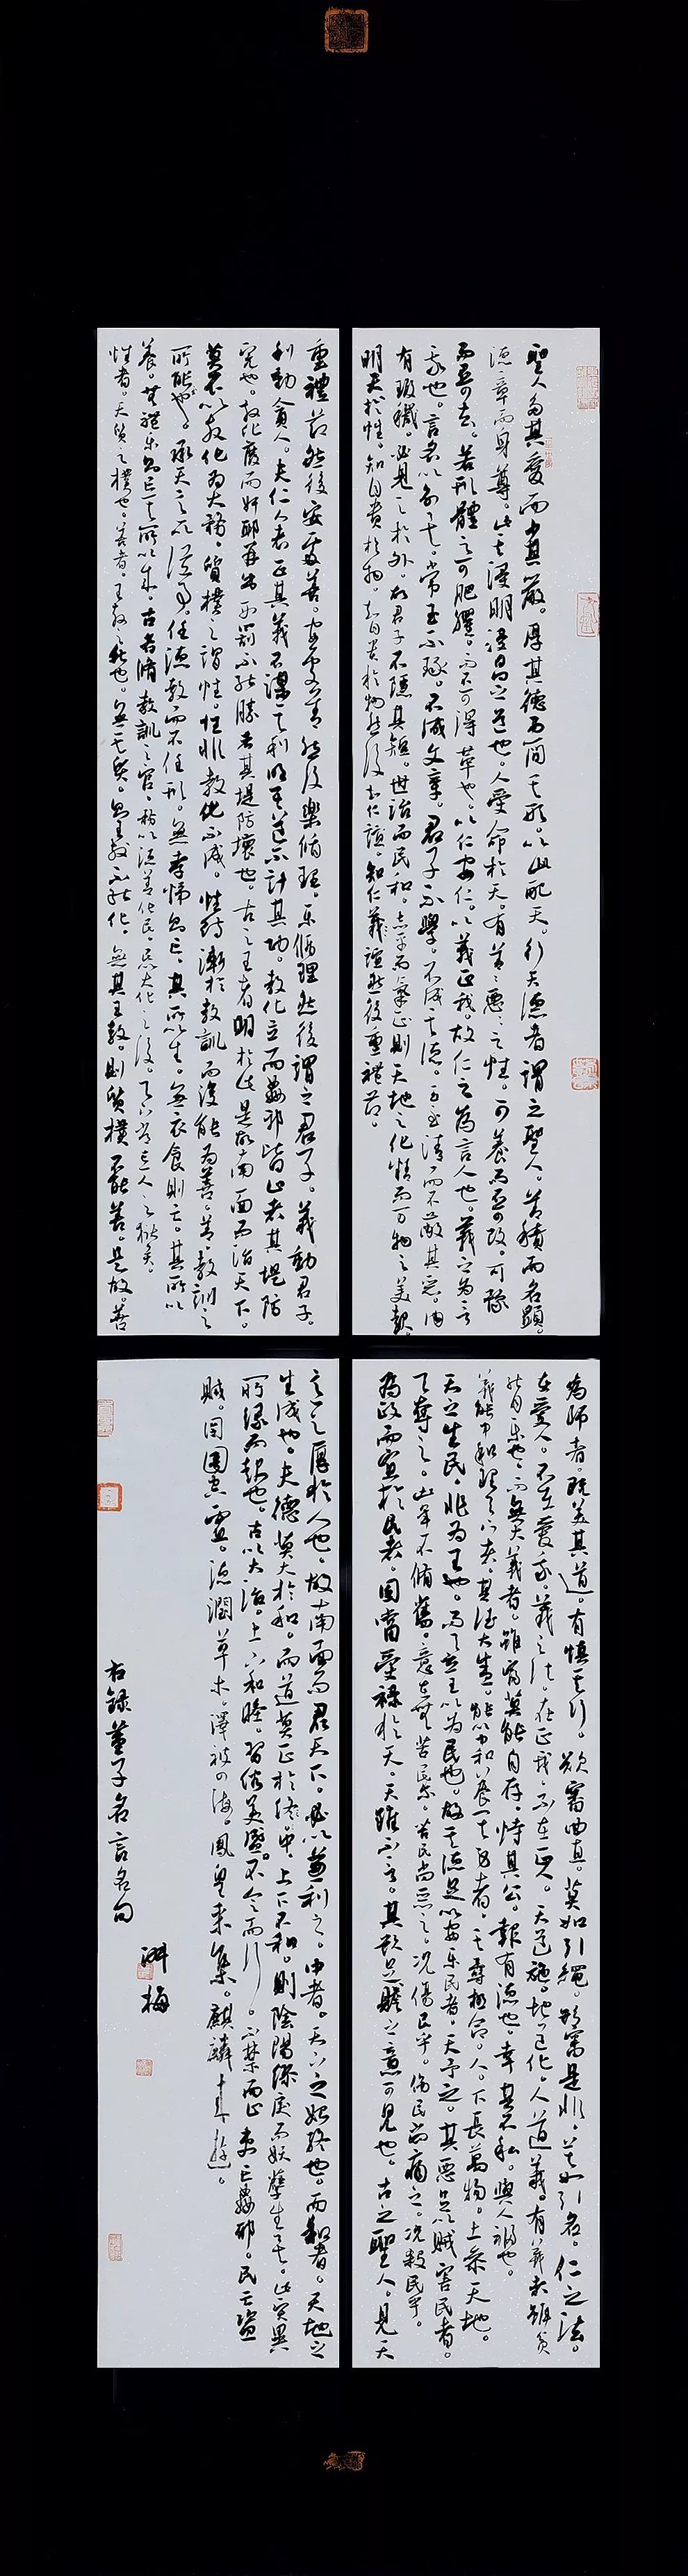 聖人多其愛而少其嚴。厚其德而簡其形。以此配天。行天德者謂之聖人。善積而名顯。
德章而身尊。此其浸明浸昌之道也。人受命於天。有善善惡惡之性。可養而不可改。可豫
而不可去。若形體之可肥臞。而不可得革也。以仁安仁。以義正我。故仁之為言人也。義之為言
我也。言名以別矣。常玉不琢。不成文章。君子不學。不成其德。玉至清而不蔽其惡。內
有瑕穢。必見之於外。故君子不隱其短。世治而民和。志平而氣正則天地之化精而萬物之美起。
明天於性。知自貴於物。知自貴於物然後知仁誼。知仁義誼然後重禮節。
重禮節然後安處善。安處善然後樂循理。樂循理然後謂之君子。義動君子。
利動貪人。夫仁人者正其義不謀其利明其道不計其功。教化立而姦邪皆止者其堤防
完也。教化廢而奸邪並出刑罰不能勝者其堤防壞也。古之王者明於此是故南面而治天下。
莫不以教化為大務。質樸之謂性。性非教化不成。性待漸於教訓而後能為善。善教訓之
所能也。承天之所從事。任德教而不任刑。無孝悌則亡。其所以生。無衣食則亡。其所以
養。無禮樂則亡其所以成。古者脩教訓之官。務以德善化民。民大化之後。天下常亡一人之獄矣。
性者。天質之樸也。善者。王教之化也。無其質。則王教不能化。無其王教。則質樸不能善。是故。善
為師者。既美其道。有慎其行。欲審曲直。莫如引繩。欲審是非。莫如引名。仁之法。
在愛人。不在愛我。義之法。在正我。不在正人。天道施。地道化。人道義。有義者雖貧
能自樂也。而無大義者。雖富莫能自存。恃其公。報有德也。幸其不私。與人祸也。
義能中和理天下者。其德大盛。能以中和養其身者。其壽極命。人。下長萬物。上參天地。
天之生民。非為王也。而天立王以為民也。故其德足以安樂民者。天予之。其惡足以賊害民者。
天奪之。凶年不脩舊。意在無苦民爾。苦民尚惡之。況傷民乎。傷民尚痛之。況殺民乎。
為政而宜於民者。固當受祿於天。天雖不言。其欲足贍之意可見也。古之聖人。見天
意之厚於人也。故南面而君天下。必以兼利之。中者。天下之始終也。而和者。天地之
生成也。夫德莫大於和。而道莫正於中。上下不和。則陰陽繆戾而妖孽生矣。此災異
所緣而起也。古以大治。上下和睦。習俗美盛。不令而行。不禁而止。吏亡姦邪。民亡盜
賊。囹圄空虛。德潤草木。澤被四海。鳳皇來集。麒麟來遊。
右錄董子名言名句
洲梅